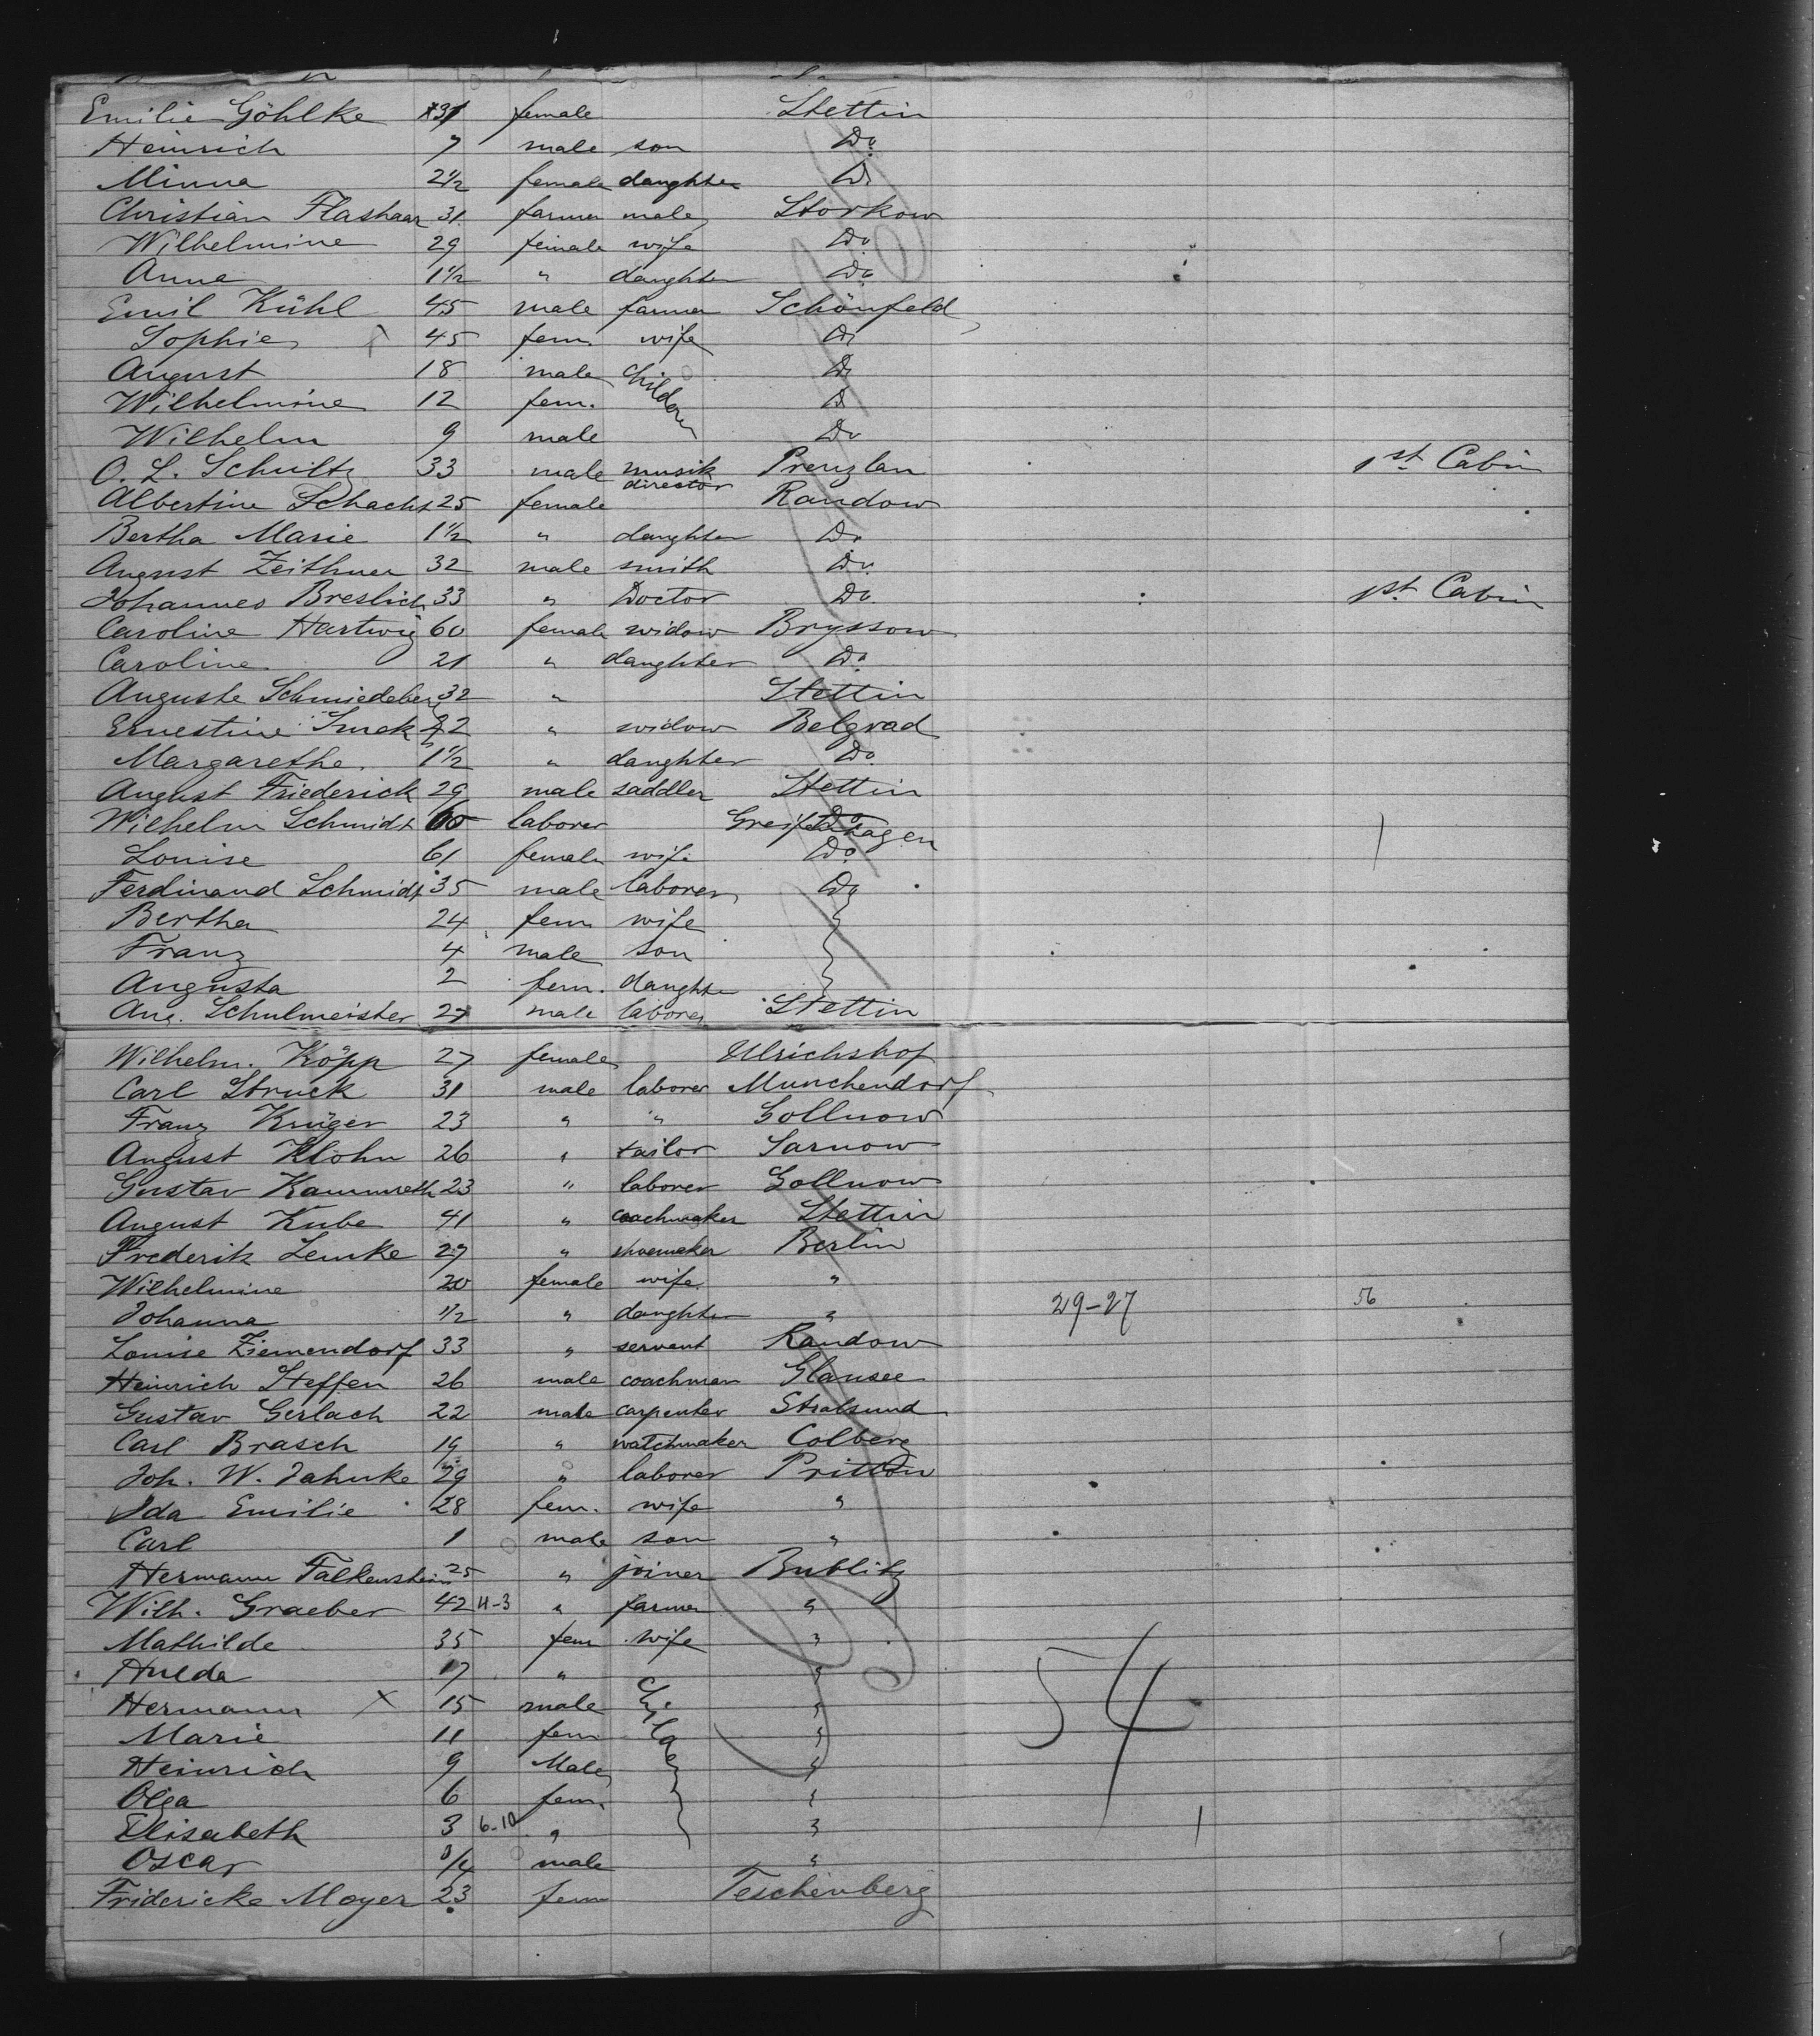 Emilie Göhlke 31 female Stettin
Heinrich 7 male son Do
Minna 2 1/2 female daughter Do
Christian Flashaar 31 farmer male Storkow
Wilhelmine 29 female wife Do
Anna 1 1/2 " daughter Do
Emil Kühl 45 male farmer Schönfeld
Sophie 45 fem. wife Do
August 18 male children Do
Wilhelmine 12 fem. Do
Wilhelm 9 male Do
O. L. Schultz 33 male musik director Prenzlau 1st Cabin
Albertine Schacht 25 female Randow
Bertha Marie 1 1/2 " daughter Do
August Zeithner 32 male smith Do
Johannes Breslich 33 " Doctor Do 1st Cabin
Caroline Hartwig 60 female widow Bryssow
Caroline 21 " daughter Do
Auguste Schmiedeberg 32 " Stettin
Ernestine 22 " widow Belgrad
Margarethe 1 1/2 " daughter Do
August Friederick 29 male saddler Stettin
Wilhelm Schmidt 60 laborer Greifenhagen
Louise 61 female wife Do
Ferdinand Schmidt 35 male laborer Do
Bertha 24 fem wife
Franz 4 male son
Augusta 2 fem. daughter
Aug. Schulmeister 27 male laborer Stettin
Wilhelm. Köpp 27 female Ulrichshof
Carl Struck 31 male laborer Munchendorf
Franz Krüger 23 " " Gollnow
August Klohn 26 " tailor Sarnow
Gustav Kammreth 23 " laborer Gollnow
August Kube 41 " coachmaker Stettin
Frederik Lemke 27 " shoemaker Berlin
Wilhelmine 20 female wife "
Johanna 1/2 " daughter " 29-27 56
Louise Ziemendorf 33 " servant Randow
Heinrich Steffen 26 male coachman Glansee
Gustav Gerlach 22 male carpenter Stralsund
Carl Brasch 19 " watchmaker Colberg
Joh. W. Jahnke 29 " laborer Pritton
Ida Emilie 28 fem. wife "
Carl 1 male son "
Hermann Falkenstein 25 " joiner Bublitz
Wilh. Graeber 42 4-3 " farmer "
Mathilde 35 fem wife "
Hulda 17 " "
Hermann X 15 male "
Marie 11 fem " 54
Heinrich 9 Male "
Olga 6 fem. "
Elisabeth 3 6-10 " "
Oscar 3/4 male "
Fridericke Moyer 23 fem Teschenberg